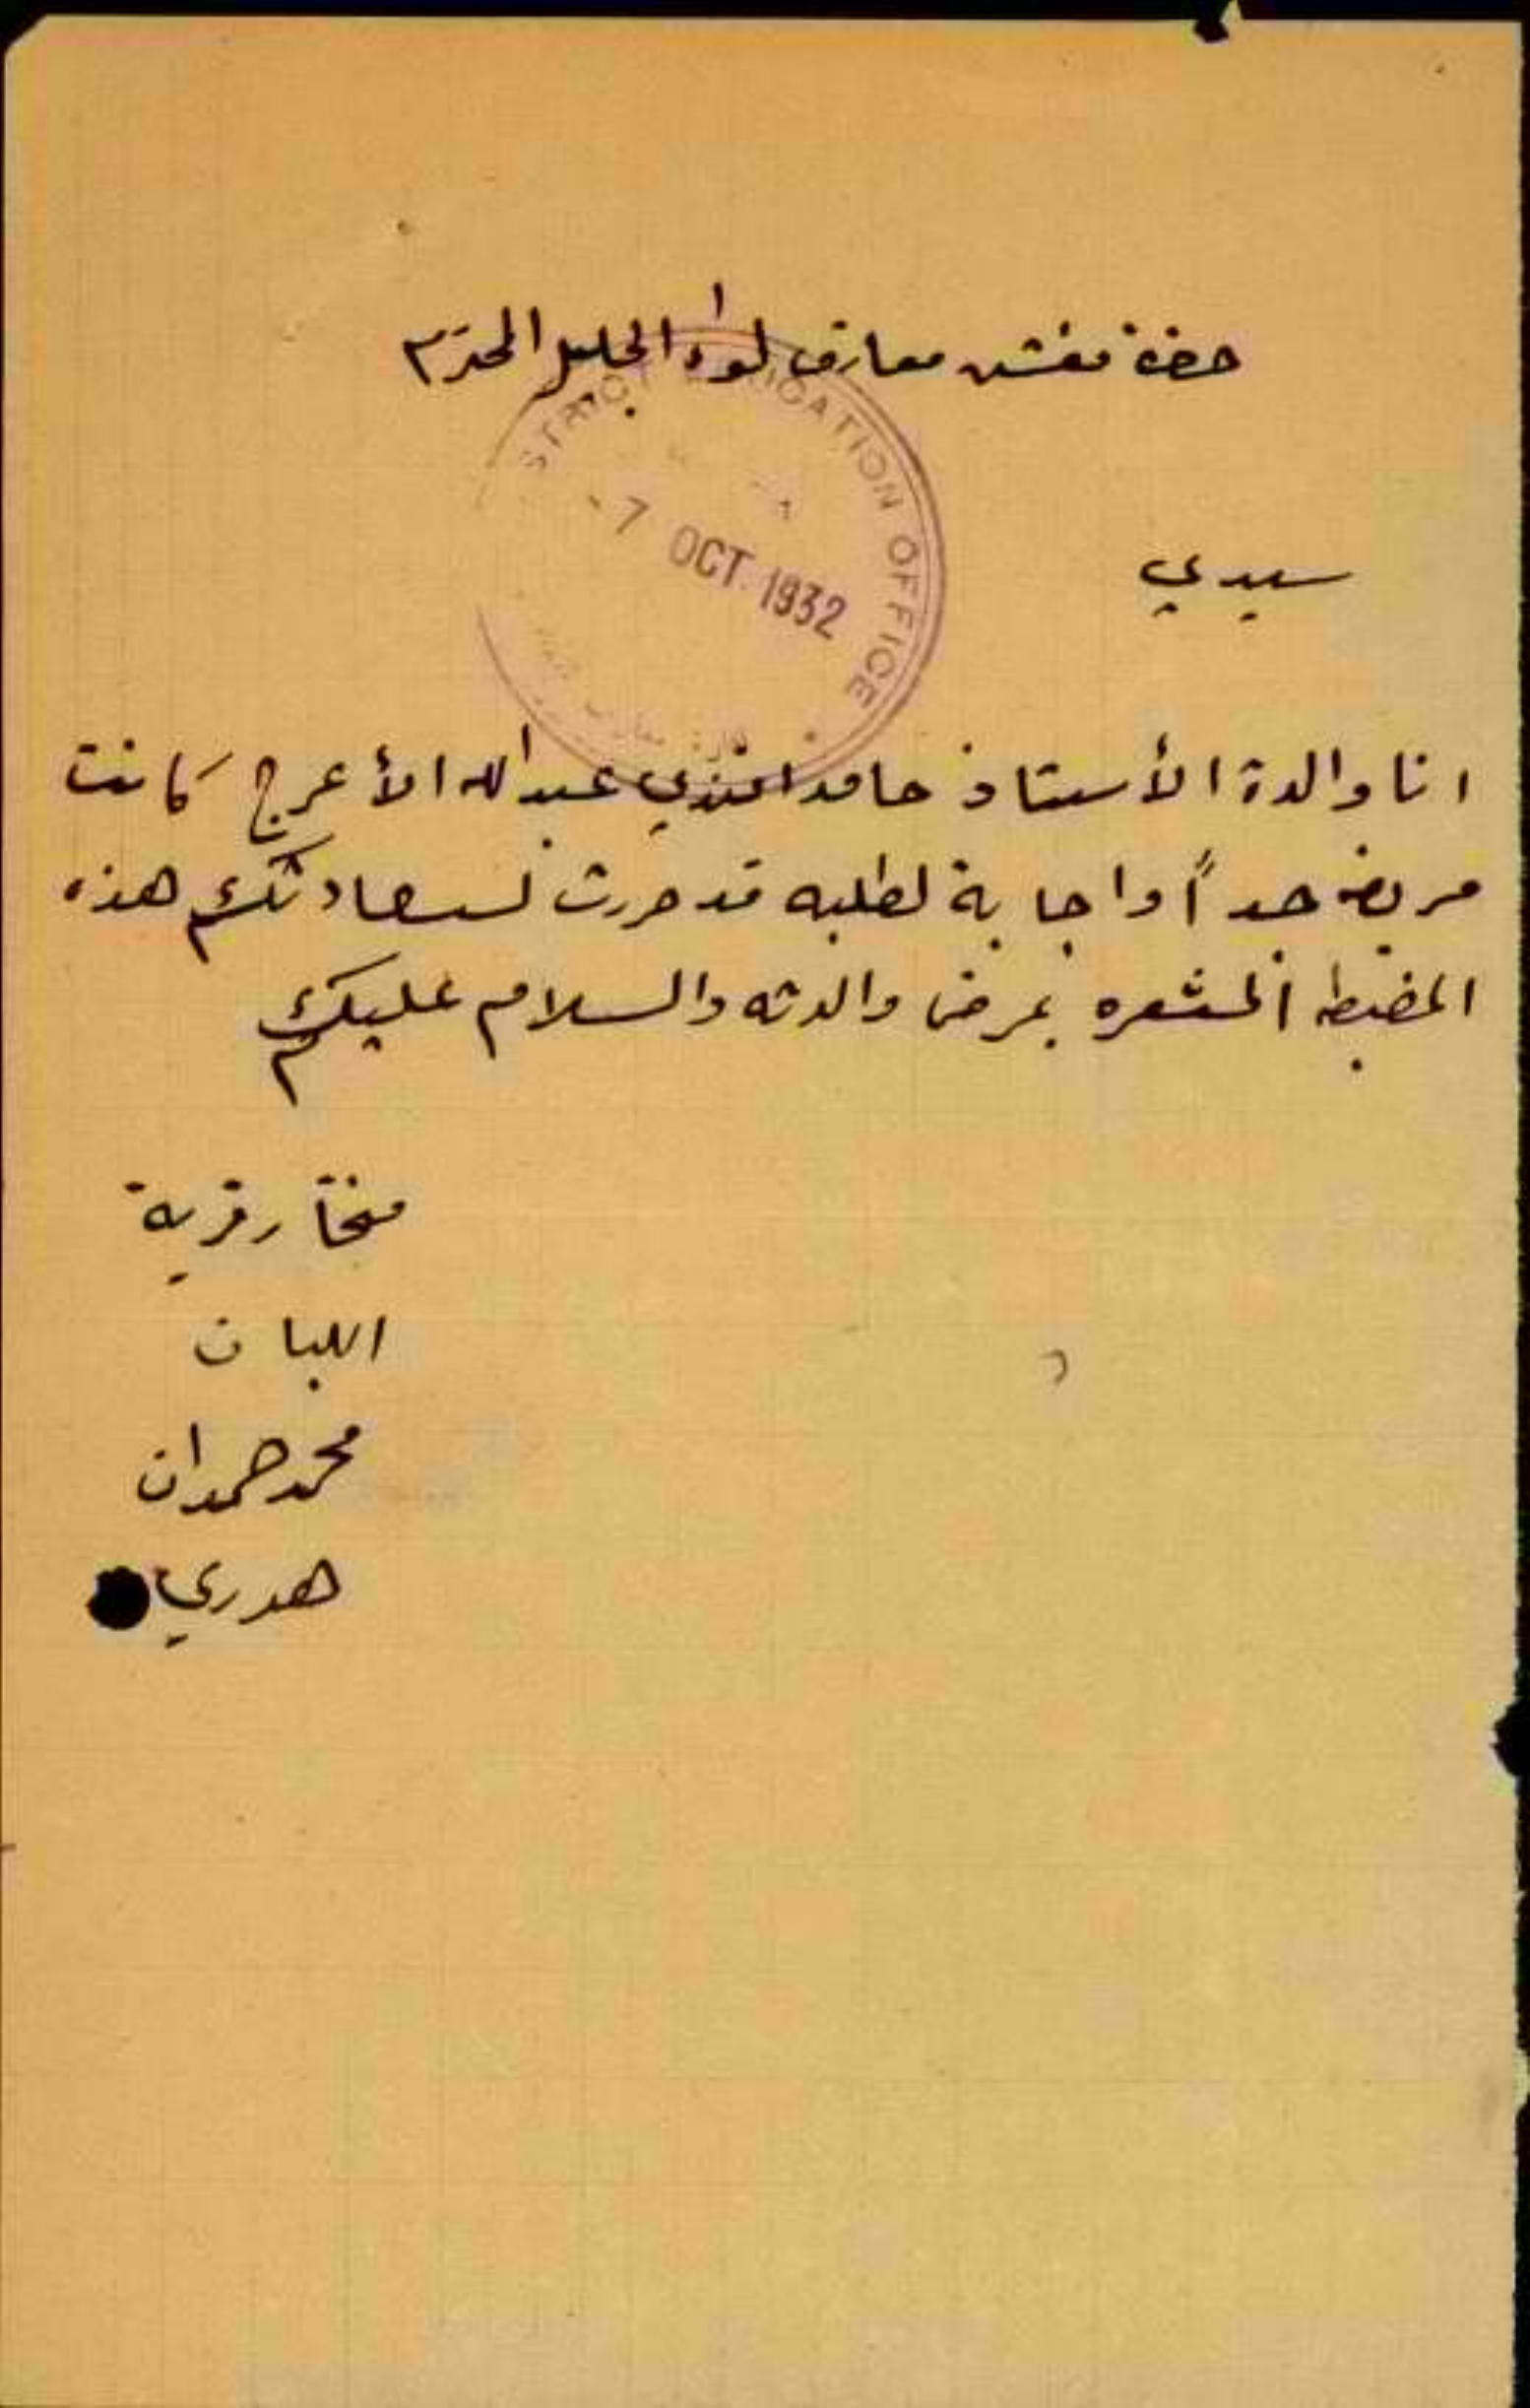 حضرة مفتش معارف لواء الجليل المحترم
STRICT EDUCATION OFFICE
7 OCT. 1932
سيدي
انا والدة الأستاذ حامد افندي عبدالله الأعرج كانت
مريضه جداً واجابة لطلبه قد حررت لسعادتكم هذه
المضبطه المشعره بمرض والدته والسلام عليكم
مختار قرية
اللبان
محمد حمدان
هدري